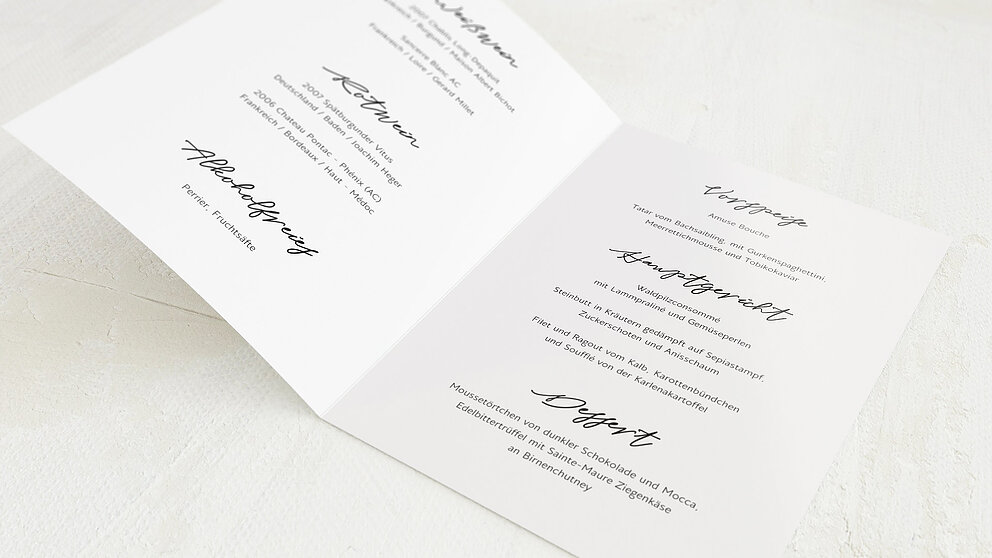 Weißwein
2007 Chablis Long Depaquit
Frankreich / Burgund / Maison Albert Bichot
Sancerre Blanc AC
Frankreich / Loire / Gerard Millet
Rotwein
2007 Spätburgunder Vitus
Deutschland / Baden / Joachim Heger
2006 Chateau Pontac - Phénix (AC)
Frankreich / Bordeaux / Haut - Médoc
Alkoholfreies
Perrier, Fruchtsäfte
Vorspeise
Amuse Bouche
Tatar vom Bachsaibling, mit Gurkenspaghettini,
Meerrettichmousse und Tobikokaviar
Hauptgericht
Waldpilzconsommé
mit Lammpraliné und Gemüseperlen
Steinbutt in Kräutern gedämpft auf Sepiastampf,
Zuckerschoten und Anisschaum
Filet und Ragout vom Kalb, Karottenbündchen
und Soufflé von der Karlenakartoffel
Dessert
Moussetörtchen von dunkler Schokolade und Mocca,
Edelbittertrüffel mit Sainte-Maure Ziegenkäse
an Birnenchutney